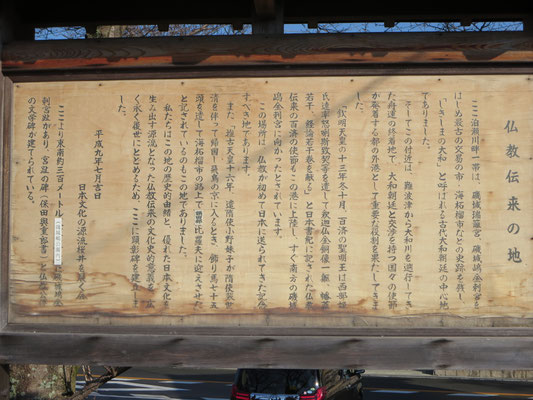 仏教伝来の地
ここ泊瀬川畔一帯は、磯城瑞籬宮、磯城嶋金刺宮を
はじめ最古の交易の市・海柘榴市などの史跡を残し、
「しきしまの大和」と呼ばれる古代大和朝廷の中心地
でありました。
そしてこの付近は、難波津から大和川を遡行してき
た舟運の終着地で、大和朝廷と交渉を持つ国々の使節
が発着する都の外港として重要な役割を果たしてきま
した。
「欽明天皇の十三年冬十月、百済の聖明王は西部姫
氏達率怒唎斯致契等を遣して釈迦仏金銅像一躯、幡蓋
若干、経論若干巻を献る」と日本書紀に記された仏教
伝来の百済の使節もこの港に上陸し、すぐ南方の磯城
嶋金刺宮に向かったとされています。
この場所は、仏教が初めて日本に送られてきた記念
すべき地であります。
また、推古天皇十六年、遣隋使小野妹子が隋使裴世
清を伴って帰国し、飛鳥の京に入るとき、飾り馬七十五
頭を遣して海柘榴市の路上で額田部比羅夫に迎えさせた
と記されているのもこの地でありました。
私たちはこの地の歴史的由緒と、優れた日本文化を
生み出す源流となった仏教伝来の文化史的意義を
永く後世にとどめるため、ここに顕彰碑を建立しま
した。
平成九年七月吉日
日本文化の源流桜井を展く会
ここより東南約三百メートル
刺宮趾があり、宮趾の碑（保田與重郎書）と仏教公伝
の文学碑が建てられている。